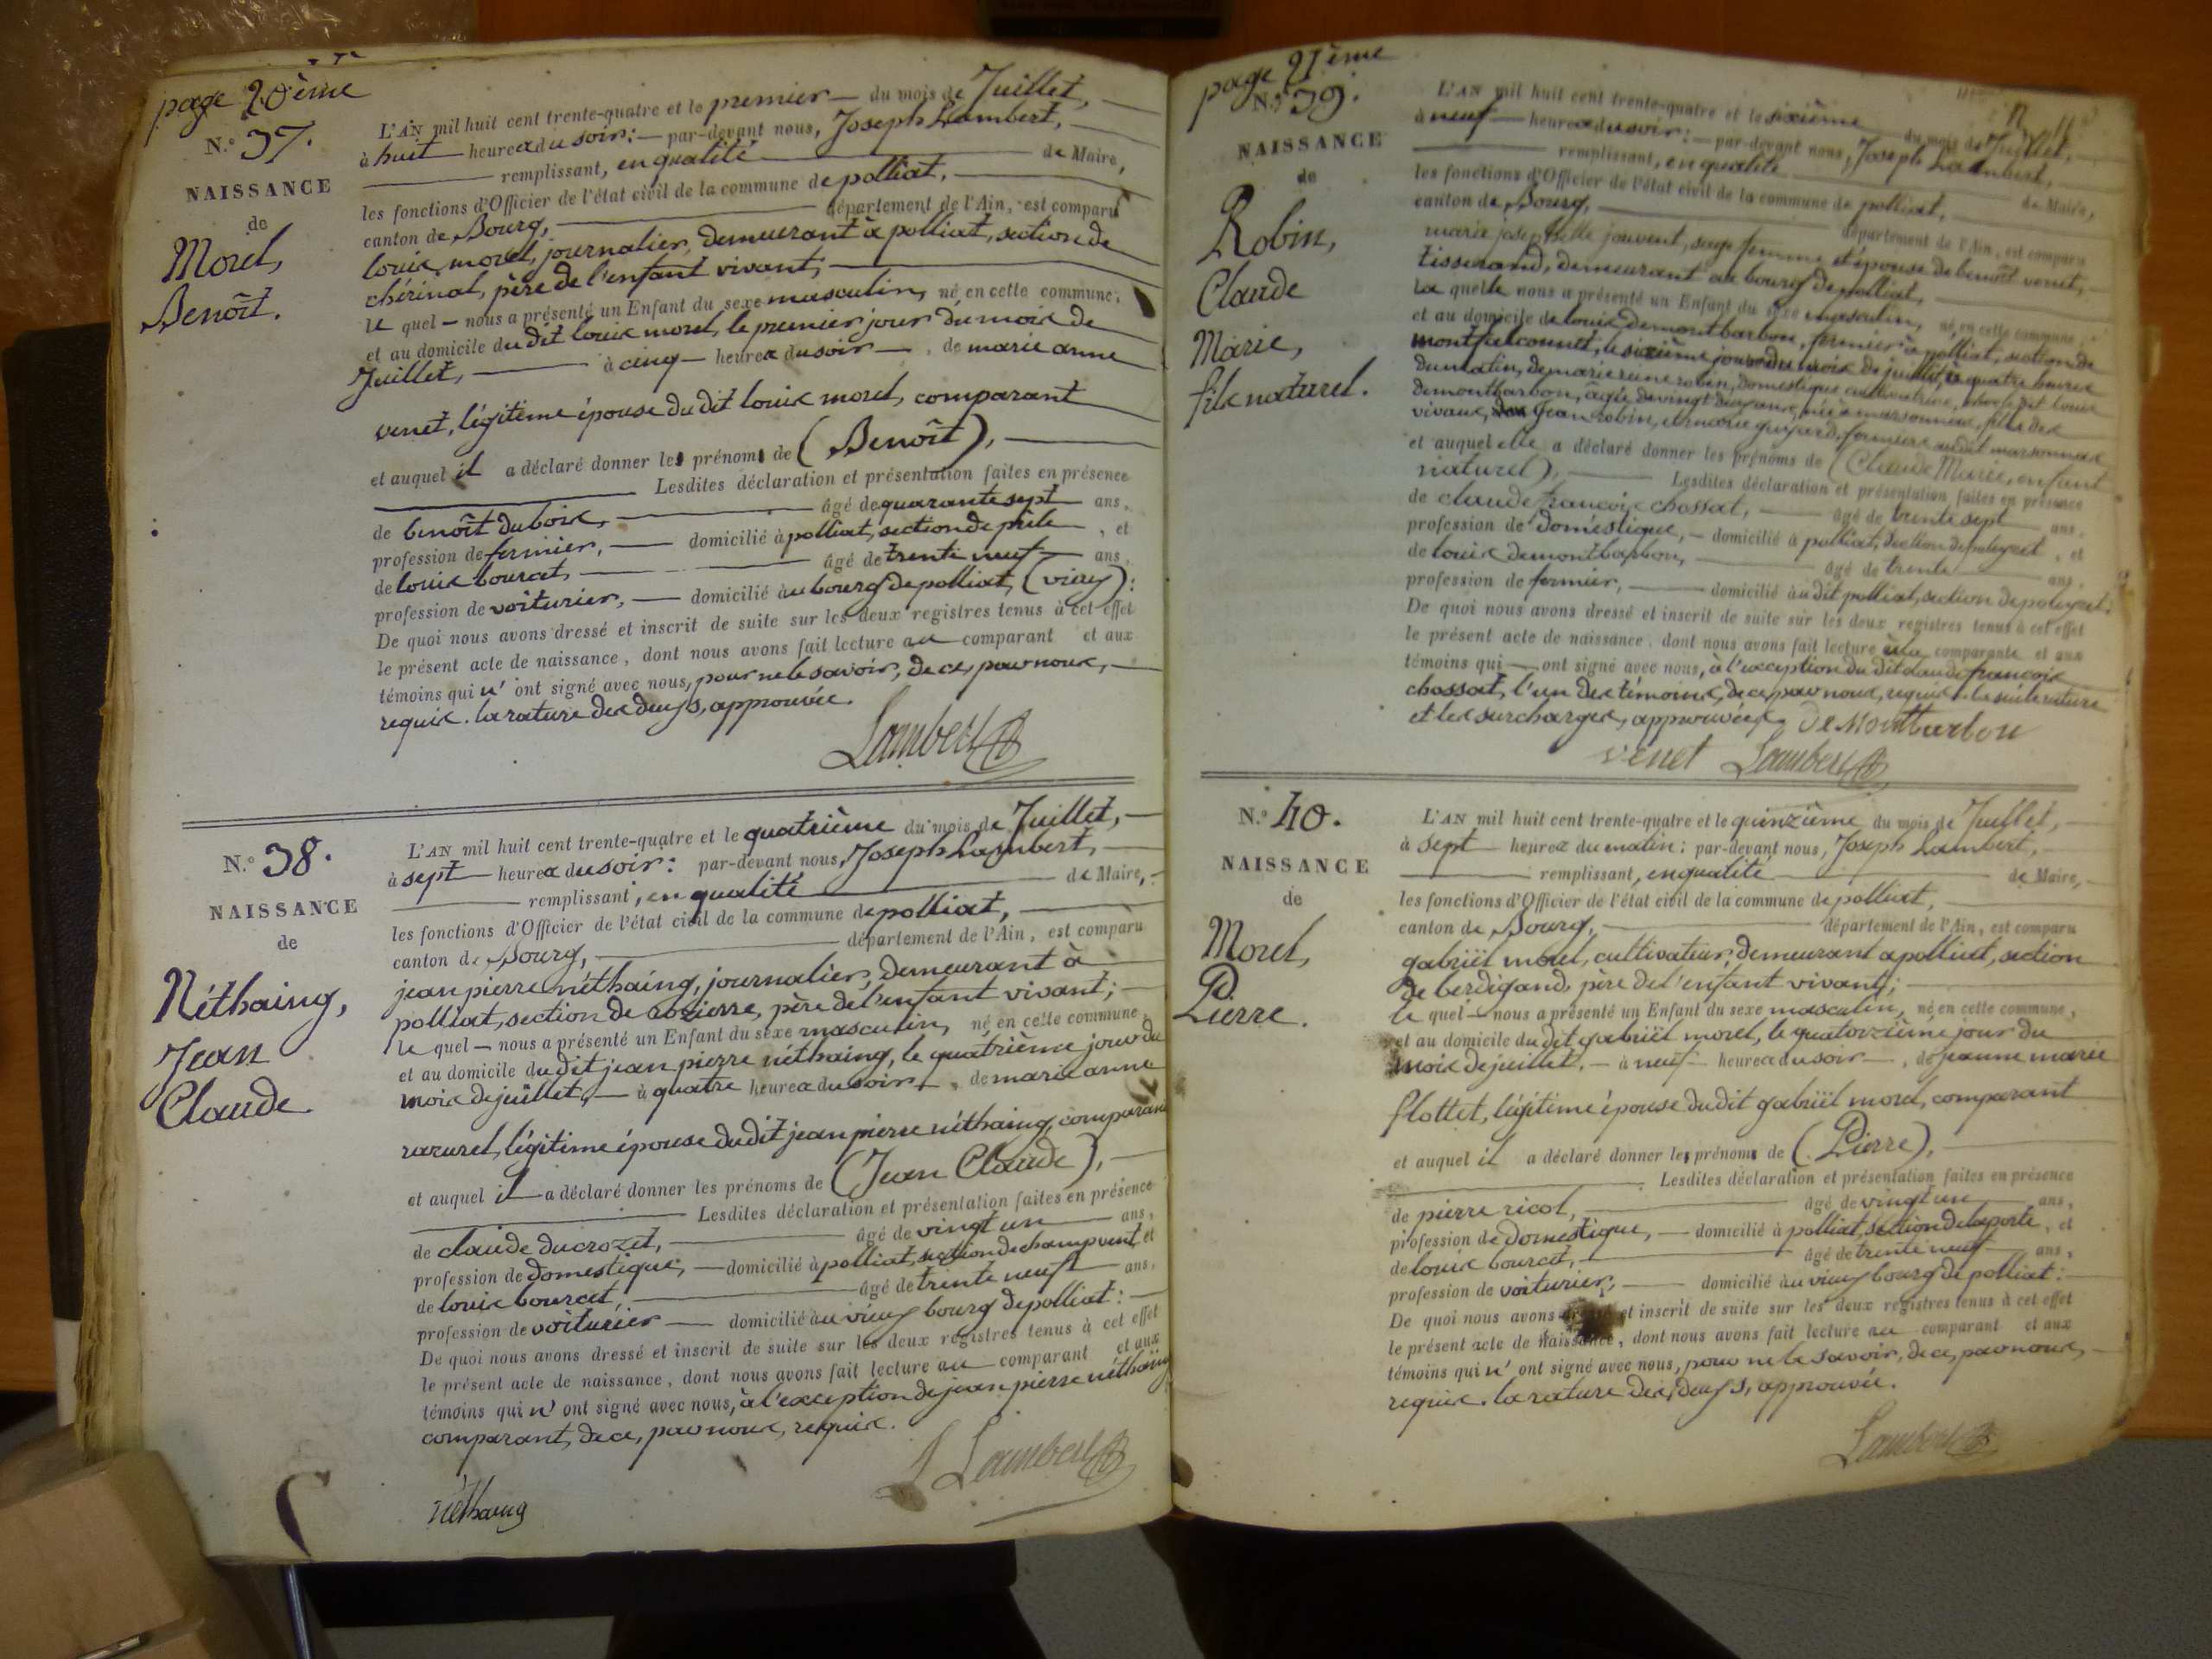 page 20ème
N.o 37.
NAISSANCE
de
Morel,
Benoît.
L'AN mil huit cent trente-quatre et le premier du mois de Juillet,
à huit heures du soir: par-devant nous, Joseph Lambert,
remplissant, en qualité de Maire,
les fonctions d'Officier de l'état civil de la commune de polliat,
canton de Bourg, département de l'Ain, est comparu
louis morel, journalier, demeurant à polliat, section de
chérinal, père de l'enfant vivant;
le quel nous a présenté un Enfant du sexe masculin, né en cette commune,
et au domicile du dit louis morel, le premier jour du mois de
Juillet, à cinq heures du soir, de marie anne
venet, légitime épouse du dit louis morel, comparant
et auquel il a déclaré donner les prénoms de (Benoît),
Lesdites déclaration et présentation faites en présence
de benoît dubois, âgé de quarante sept ans,
profession de fermier, domicilié à polliat, section de , et
de louis bourcet, âgé de trente neuf ans,
profession de voiturier, domicilié au bourg de polliat, (vieux):
De quoi nous avons dressé et inscrit de suite sur les deux registres tenus à cet effet
le présent acte de naissance, dont nous avons fait lecture au comparant et aux
témoins qui n'ont signé avec nous, pour ne le savoir, de ce, par nous,
requis. la rature des deux s, approuvée.
Lambert
N.o 38.
NAISSANCE
de
Néthaing,
Jean
Claude.
L'AN mil huit cent trente-quatre et le quatrième du mois de Juillet,
à sept heures du soir: par-devant nous, Joseph Lambert,
remplissant, en qualité de Maire,
les fonctions d'Officier de l'état civil de la commune de polliat,
canton de Bourg, département de l'Ain, est comparu
jean pierre néthaing, journalier, demeurant à
polliat, section de , père de l'enfant vivant;
le quel nous a présenté un Enfant du sexe masculin, né en cette commune,
et au domicile du dit jean pierre néthaing, le quatrième jour du
mois de juillet, à quatre heures du soir, de marie anne
razurel, légitime épouse du dit jean pierre néthaing, comparant
et auquel il a déclaré donner les prénoms de (Jean Claude),
Lesdites déclaration et présentation faites en présence
de claude ducrozet, âgé de vingt un ans,
profession de domestique, domicilié à polliat, section de champvent et
de louis bourcet, âgé de trente neuf ans,
profession de voiturier domicilié au vieux bourg de polliat:
De quoi nous avons dressé et inscrit de suite sur les deux registres tenus à cet effet
le présent acte de naissance, dont nous avons fait lecture au comparant et aux
témoins qui n'ont signé avec nous, à l'exception de jean pierre néthaing
comparant, de ce, par nous, requis.
Lambert
néthaing
page 21ème
N.o 39.
NAISSANCE
de
Robin,
Claude
Marie,
fils naturel.
L'AN mil huit cent trente-quatre et le sixième du mois de Juillet,
à neuf heures du soir: par-devant nous, Joseph Lambert,
remplissant, en qualité de Maire,
les fonctions d'Officier de l'état civil de la commune de polliat,
canton de Bourg, département de l'Ain, est comparu
marie josephette jouvent, sage femme et épouse de benoît venet,
tisserand, demeurant au bourg de polliat,
la quelle nous a présenté un Enfant du sexe masculin, né en cette commune,
et au domicile de louis demontbarbon, fermier à polliat, section de
montfalconnet, le sixième jour du mois de juillet, à quatre heures
du matin, de marie reine robin, domestique cultivatrice, chez le dit louis
demontbarbon, âgée de vingt ans, née à marsonnas, fille des
vivans, jean robin, et marie guyard, fermiers au dit marsonnas
et auquel elle a déclaré donner les prénoms de (Claude Marie, enfant
naturel), Lesdites déclaration et présentation faites en présence
de claude françois chossat, âgé de trente sept ans,
profession de domestique, domicilié à polliat, section de , et
de louis demontbarbon, âgé de trente ans,
profession de fermier, domicilié au dit polliat, section de
De quoi nous avons dressé et inscrit de suite sur les deux registres tenus à cet effet
le présent acte de naissance, dont nous avons fait lecture à la comparante et aux
témoins qui ont signé avec nous, à l'exception du dit claude françois
chossat, l'un des témoins, de ce, par nous, requis. la rature
et les surcharges, approuvées. De Montbarbon
venet Lambert
N.o 40.
NAISSANCE
de
Morel,
Pierre.
L'AN mil huit cent trente-quatre et le quinzième du mois de Juillet,
à sept heures du matin: par-devant nous, Joseph Lambert,
remplissant, en qualité de Maire,
les fonctions d'Officier de l'état civil de la commune de polliat,
canton de Bourg, département de l'Ain, est comparu
gabriël morel, cultivateur, demeurant à polliat, section
de berdigand, père de l'enfant vivant;
le quel nous a présenté un Enfant du sexe masculin, né en cette commune,
et au domicile du dit gabriël morel, le quatorzième jour du
mois de juillet, à neuf heures du soir, de jeanne marie
flottet, légitime épouse du dit gabriël morel, comparant
et auquel il a déclaré donner les prénoms de (Pierre),
Lesdites déclaration et présentation faites en présence
de pierre ricol, âgé de vingt un ans,
profession de domestique, domicilié à polliat, section de laporte, et
de louis bourcet, âgé de trente neuf ans,
profession de voiturier, domicilié au vieux bourg de polliat:
De quoi nous avons et inscrit de suite sur les deux registres tenus à cet effet
le présent acte de naissance, dont nous avons fait lecture au comparant et aux
témoins qui n'ont signé avec nous, pour ne le savoir, de ce, par nous,
requis. la rature des deux s, approuvée.
Lambert